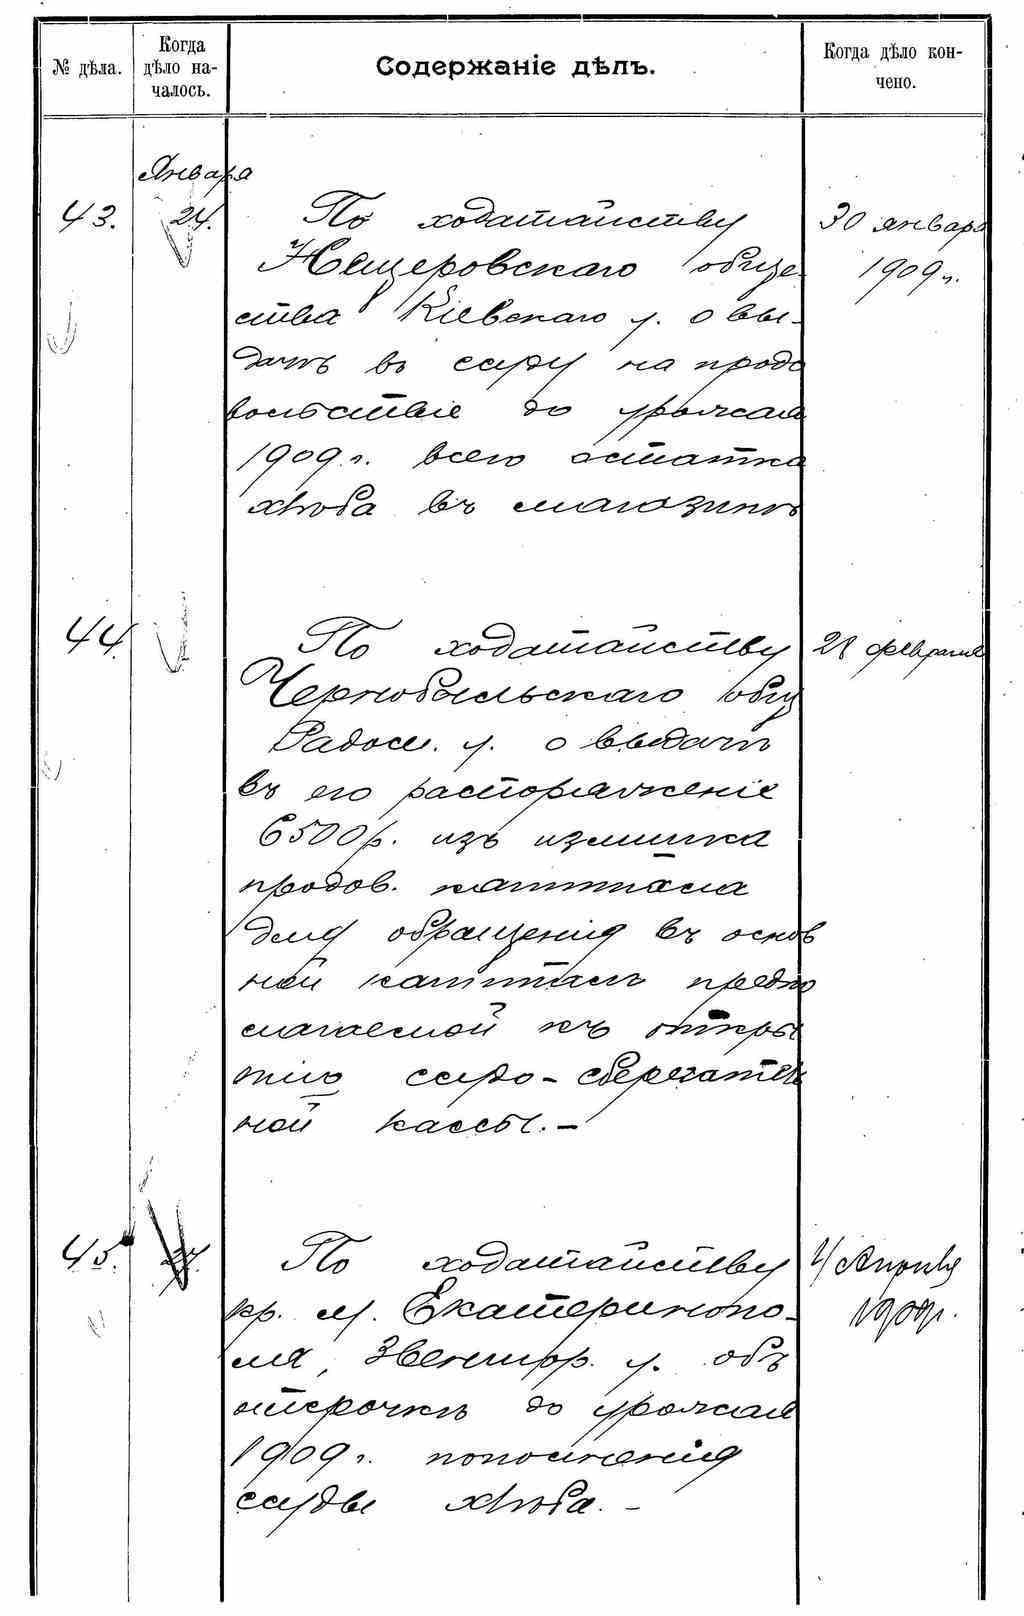 № дѣла.
Когда
дѣло на-
чалось.
Содержаніе дѣлъ.
Когда дѣло кон-
чено.
Января
43.
24.
По ходатайству
Нещеровскаго обще-
ства Кіевскаго у. о вы-
дачѣ въ ссуду на продо
вольствіе до урожая
1909 г. всего остатка
хлѣба въ магазинѣ
30 января
1909 г.
44.
По ходатайству
Чернобыльскаго общ
Радом. у. о выдачѣ
въ его распоряженіе
6500 р. изъ излишка
продов. капитала
для обращенія въ основ
ной капиталъ предпо
лагаемой къ откры
тію ссудо-сберегатель
ной кассы.-
28 февраля
45.
27.
По ходатайству
кр. м. Екатеринопо-
ля, Звенигор. у. объ
отсрочкѣ до урожая
1909 г. пополненія
ссуды хлѣба.-
4 Апрѣля
1909г.